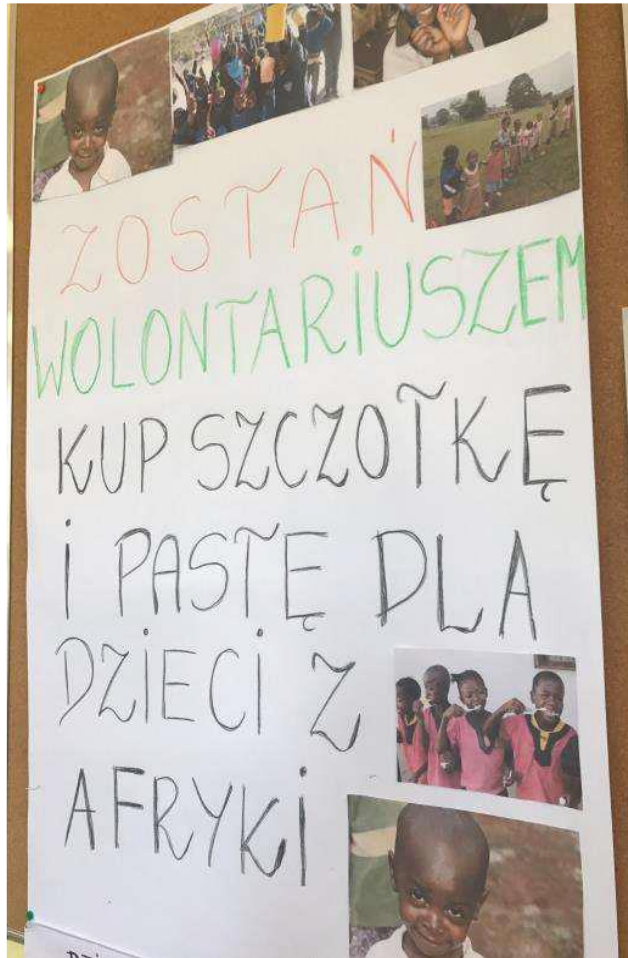 ZOSTAŃ
WOLONTARIUSZEM
KUP SZCZOTKĘ
i PASTĘ DLA
DZiECi Z
AFRYKi